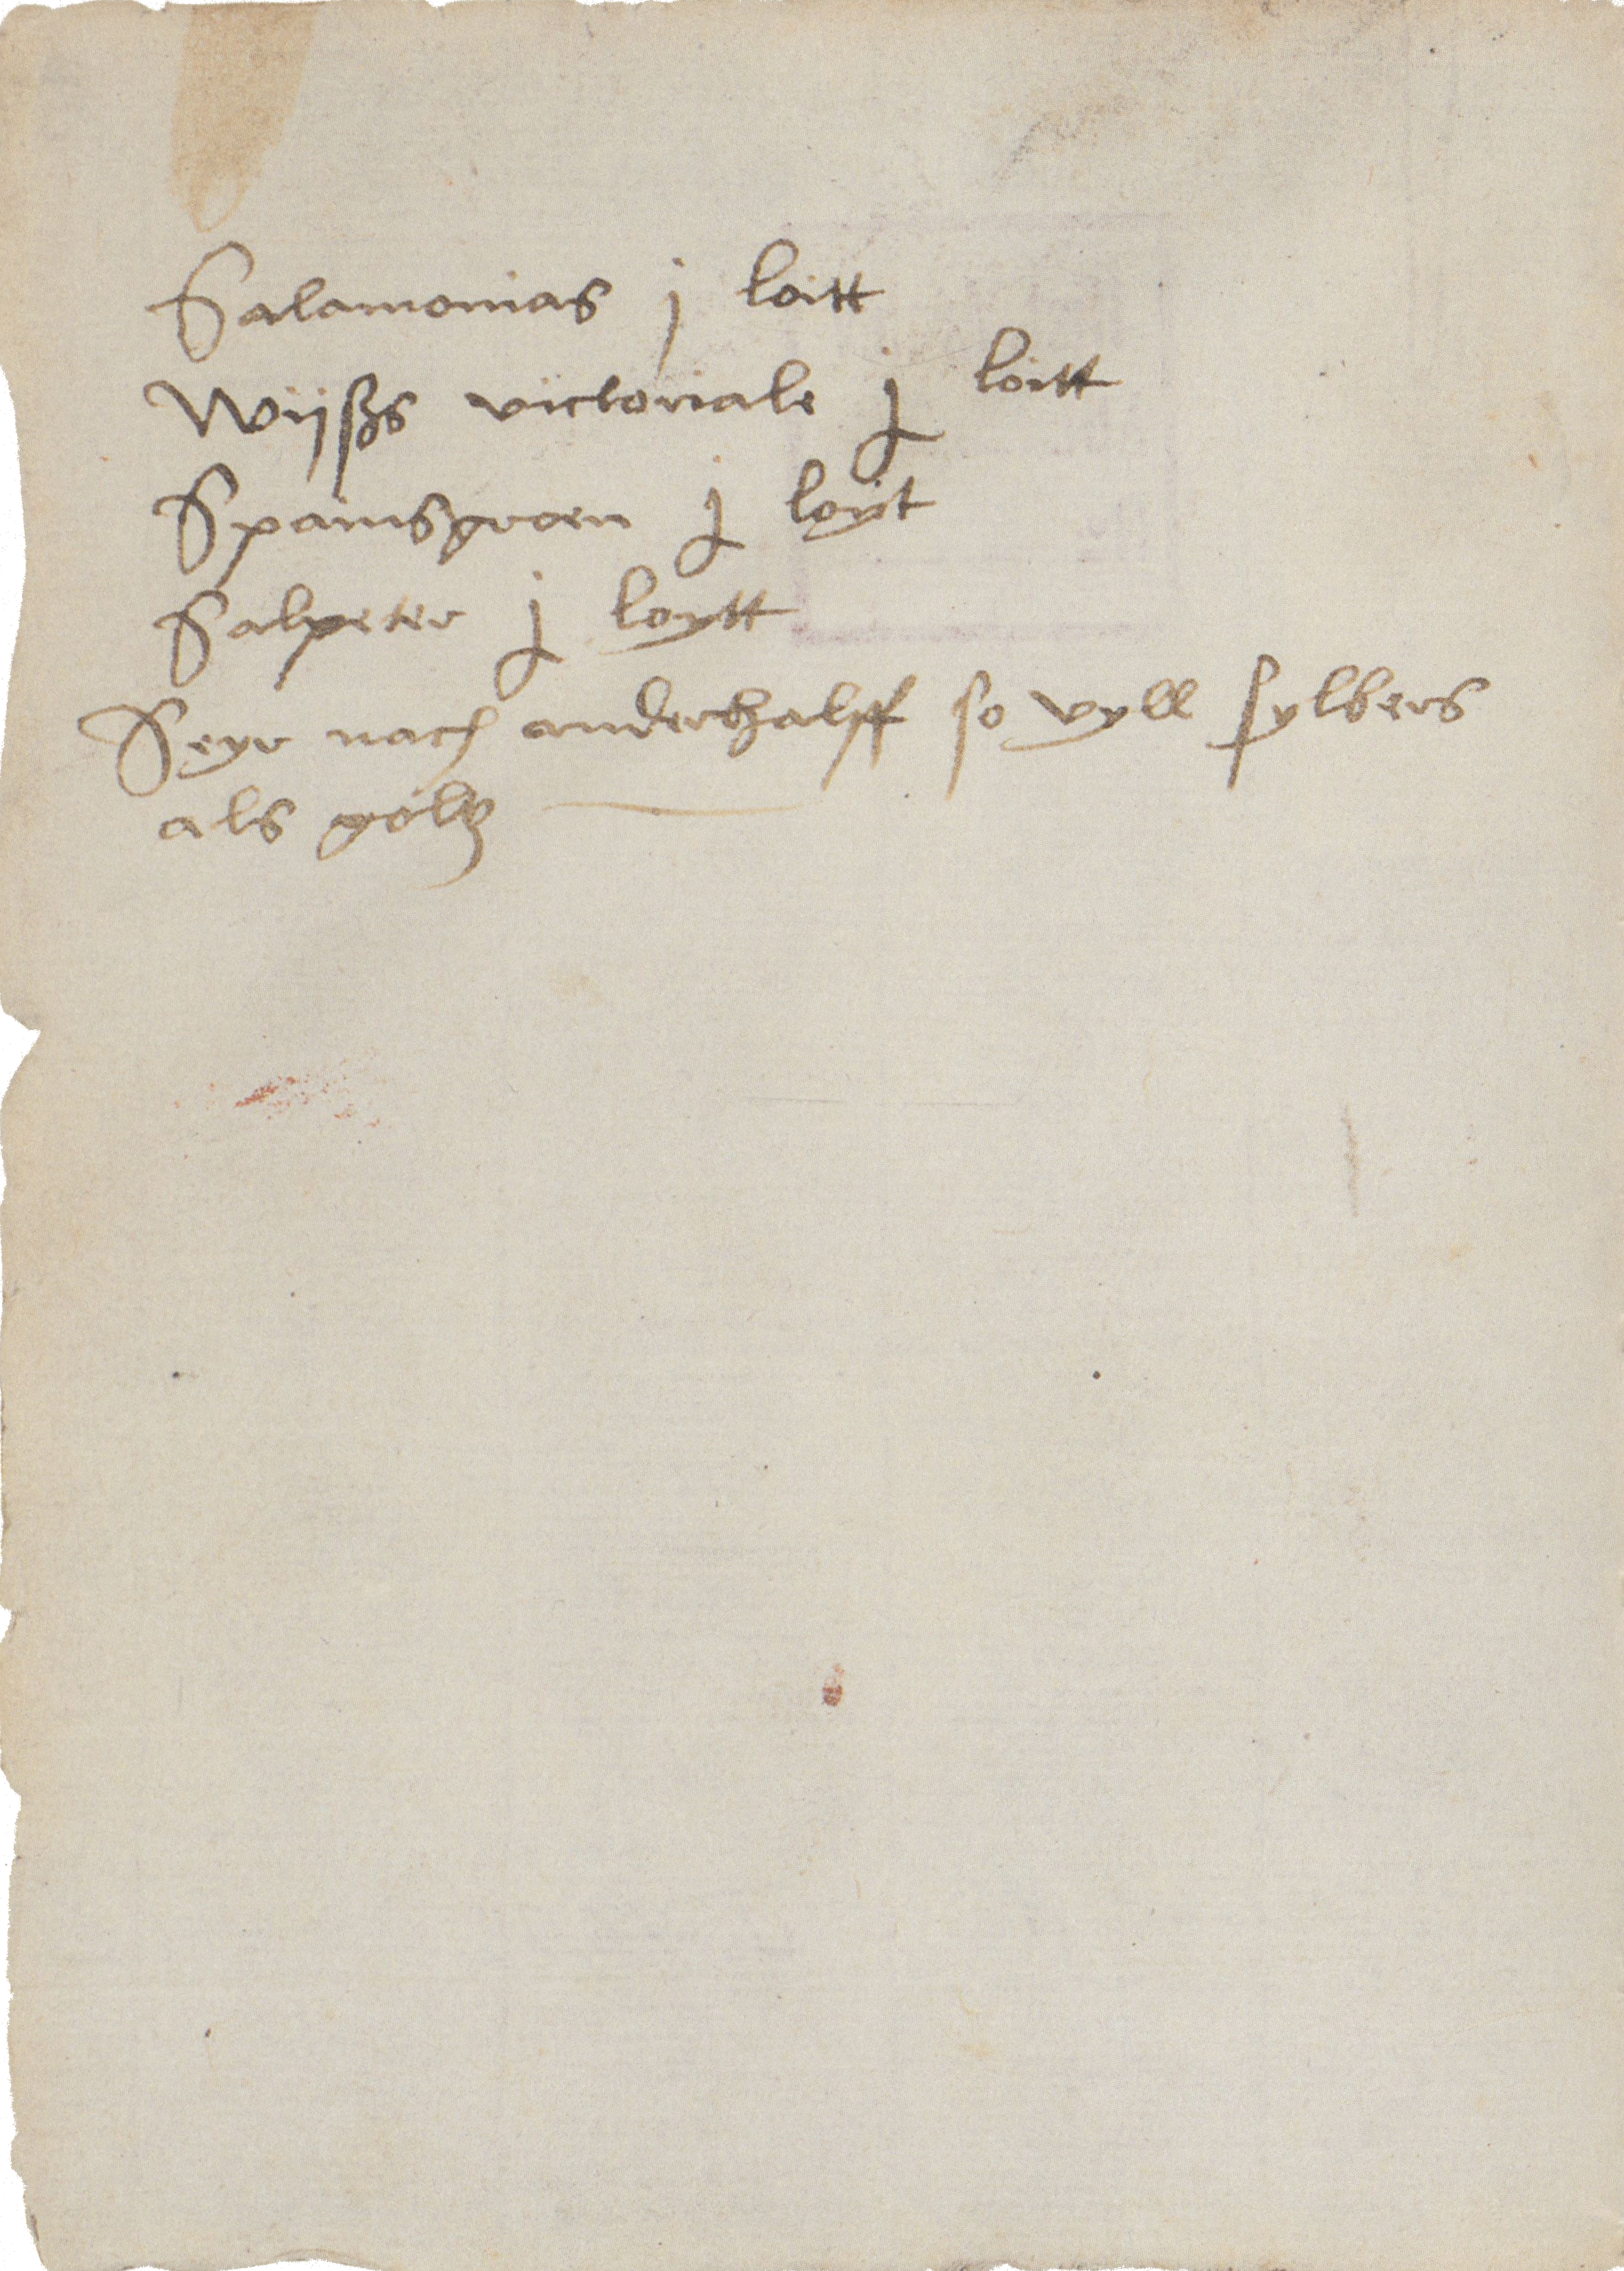 Salamonias j loitt
Wijßs victoriale j loitt
Spainsgroen j loyt
Salpeter j loytt
Seyr nach anderthalff so vyll sylbers
als goltz